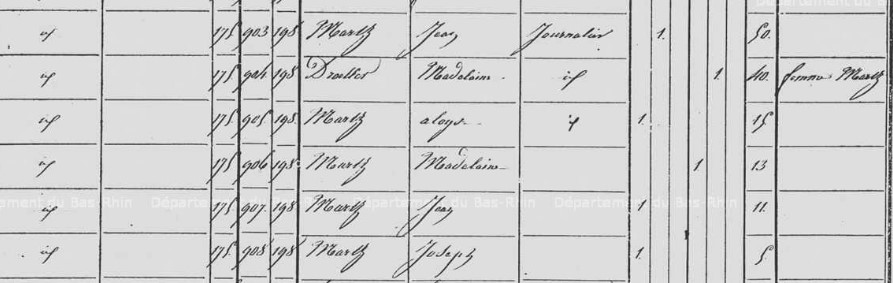 id 175 903 198 Martz Jean Journalier 1. 50.
id 175 904 198 Madelaine id 1. 40. femme Martz
id 175 905 198. Martz aloyse id 1. 15
id 175 906 198. Martz Madelaine 1 13
id 175 907. 198 Martz Jean 1 11.
id 175. 908. 198 Martz Joseph 1. 5
Département du Bas-Rhin